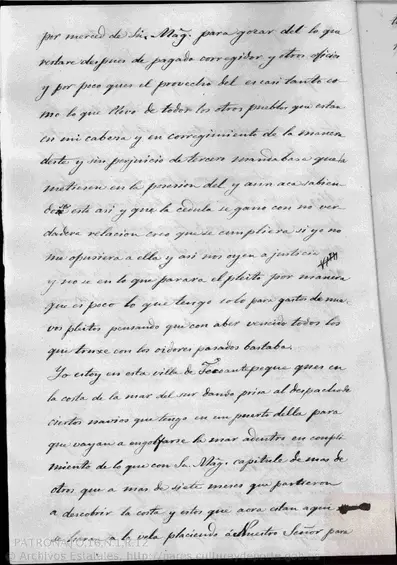 por merced de Su. Mag. para gozar del lo que
restare despues de pagado corregidor y otros oficios
y por poco ques el provecho del es casi tanto co
mo lo que llevo de todos los otros pueblos que estan
en mi cabeza y en corregimiento de la manera
deste y sin perjuicio de tercero mandaba que la
metiesen en la posesion del y aun aca sabien
do este asi y que la cedula se gano con no ver
dadera relacion creo que se cumpliera si yo no
me opusiera a ella y asi nos oyen a justicia
y no se en lo que parara el pleito por manera
que es poco lo que tengo solo para gastos de nue
vos pleitos pensando que con aber vencido todos los
que truxe con los oidores pasados bastaba.
Yo estoy en esta villa de Tecoantepeque ques en
la costa de la mar del sur dando prisa al despacho de
ciertos navios que tengo en un puerto della para
que vayan a engolfarse la mar adentro en cumpli
miento de lo que con Su. Mag. capitulé de mas de
otros que a mas de siete meses que partieron
a descobrir la costa y estos que aora estan aqui
se haran a la vela placiendo á Nuestro Señor para
PATRONATO,16,N.1,R.12
© Archivos Estatales, http://pares.culturaydeporte.gob.es